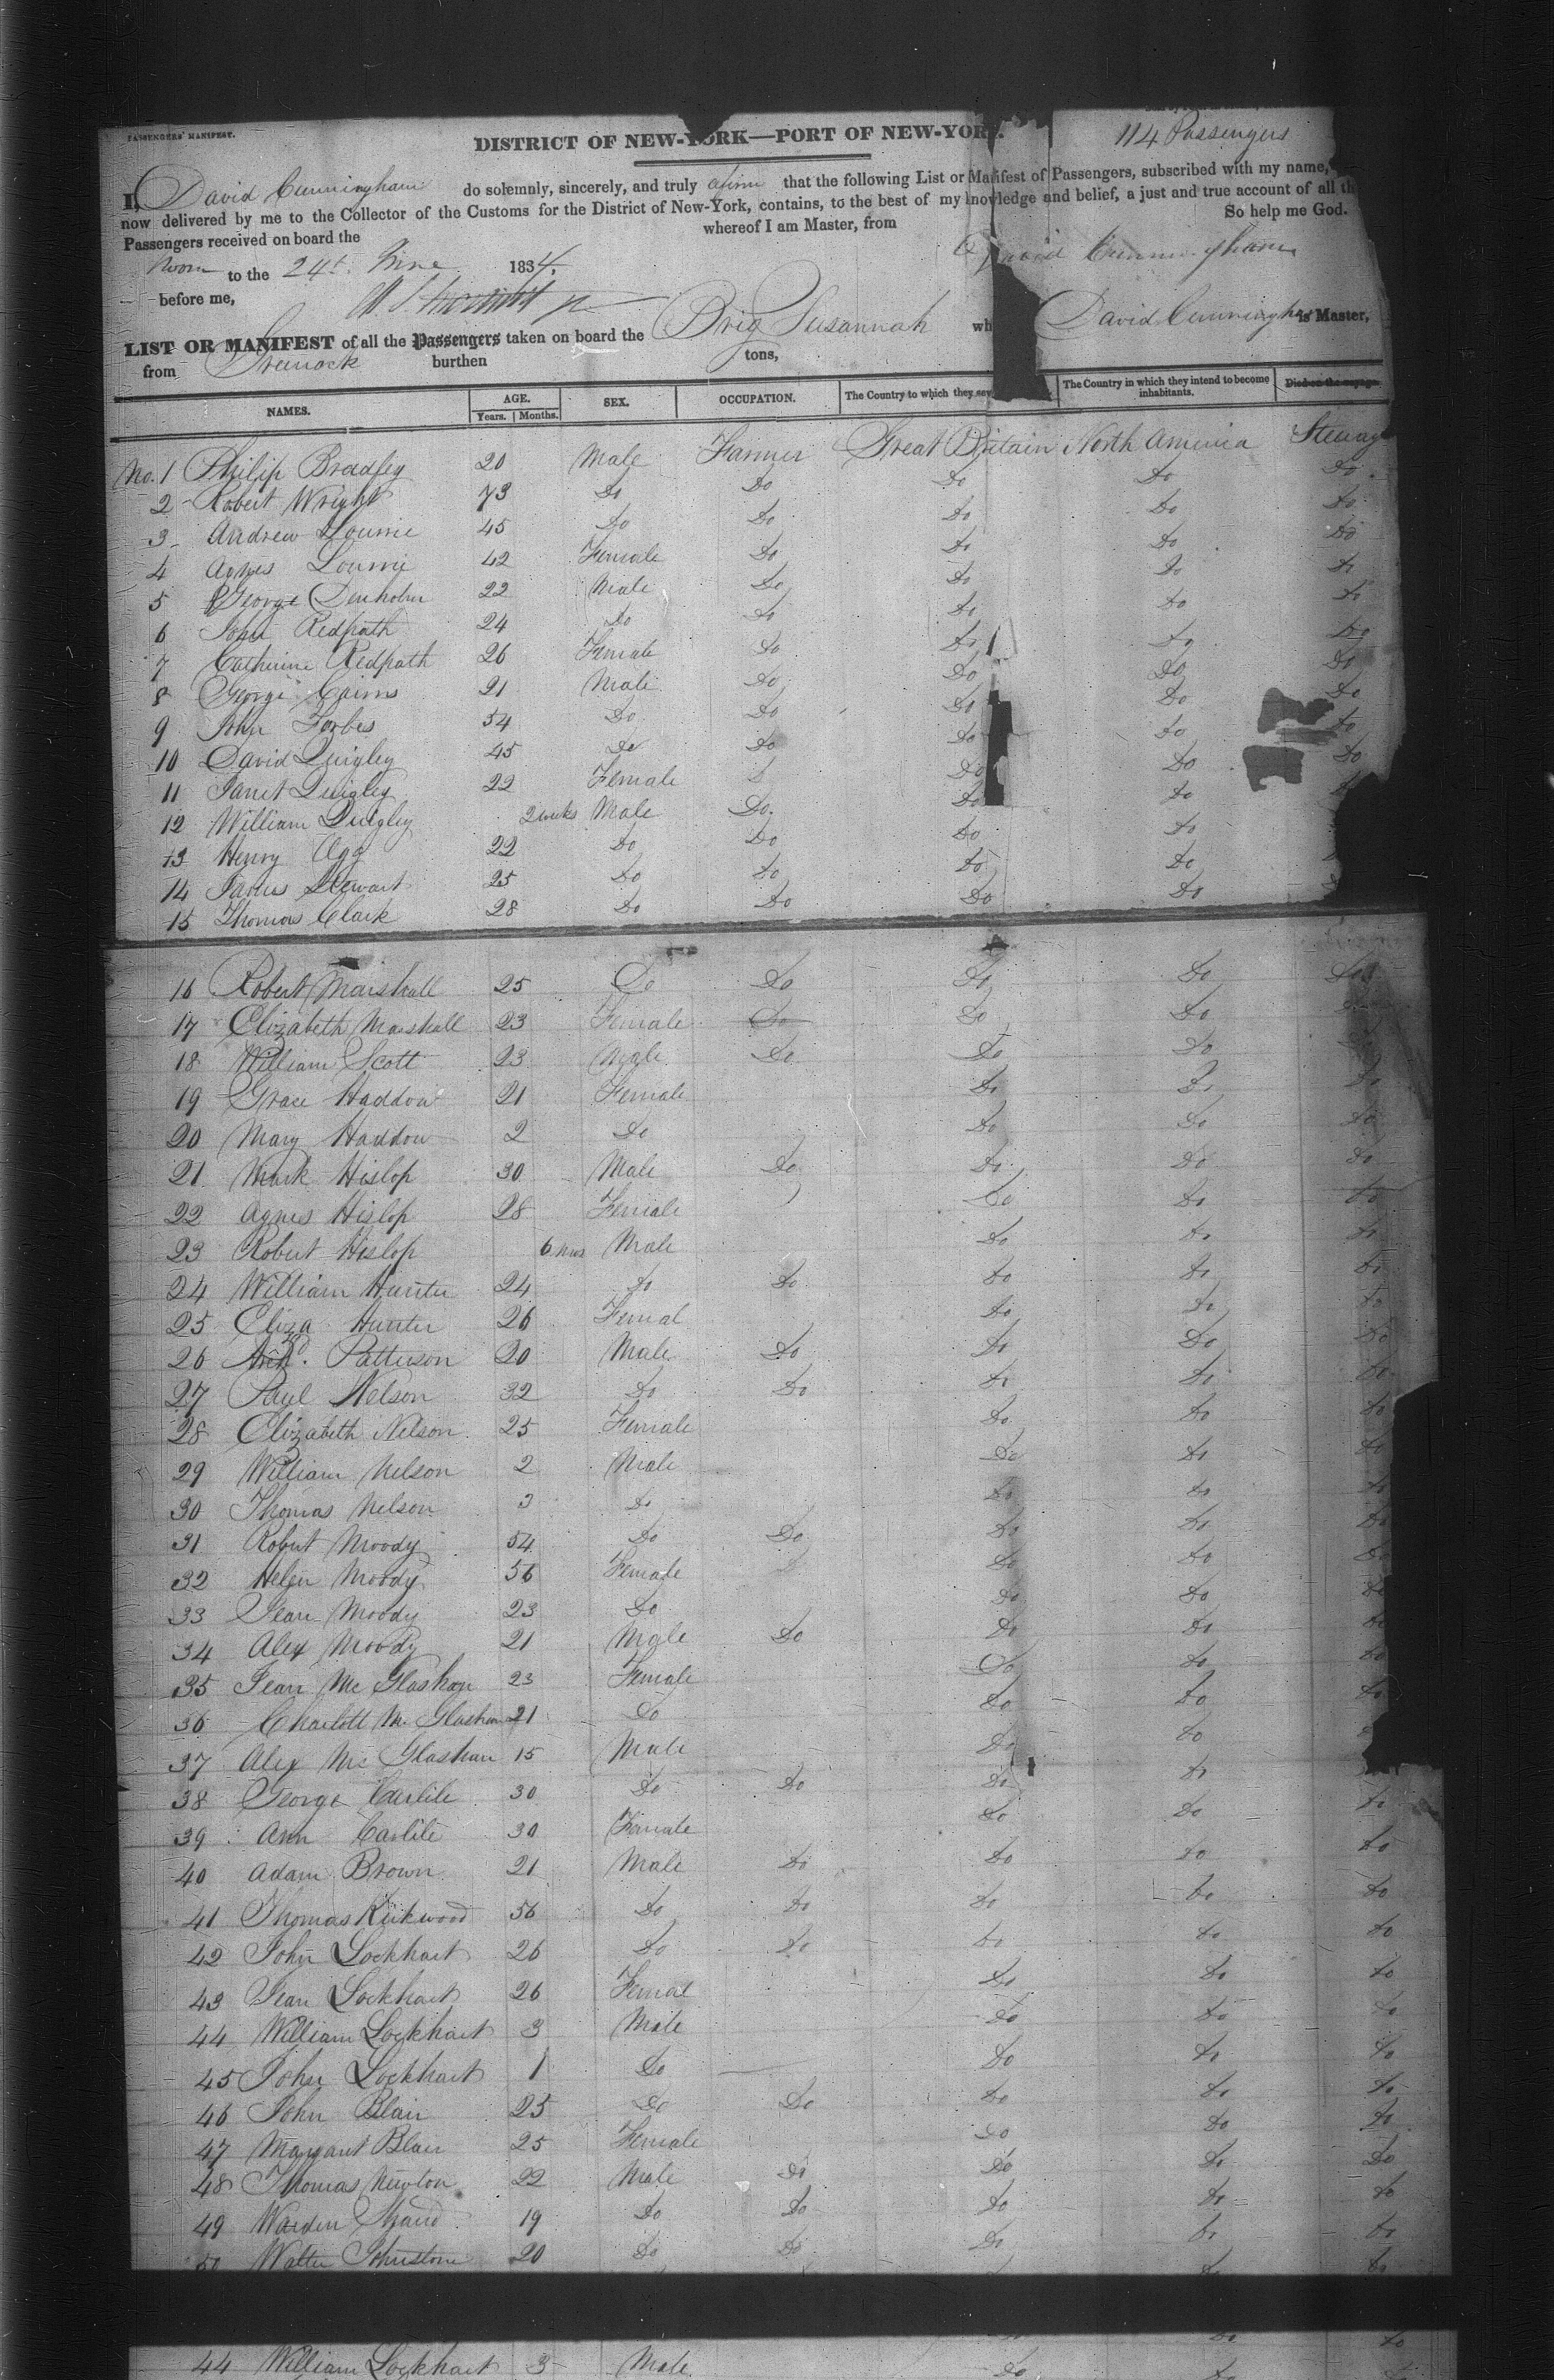 PASSENGERS' MANIFEST.
DISTRICT OF NEW-YORK—PORT OF NEW-YORK.
114 Passengers
I, David Cunningham do solemnly, sincerely, and truly afirm that the following List or Manifest of Passengers, subscribed with my name,
now delivered by me to the Collector of the Customs for the District of New-York, contains, to the best of my knowledge and belief, a just and true account of all th
Passengers received on board the whereof I am Master, from So help me God.
to the 24t. 1834. David Cunningham
before me,
LIST OR MANIFEST of all the Passengers taken on board the Brig Susannah wh David Cunningham is Master,
from Greenock burthen tons,
NAMES. AGE. Years. Months. SEX. OCCUPATION. The Country to which they sev The Country in which they intend to become inhabitants. Died on the voyage.
No. 1 Philip Bradley 20 Male Farmer Great Britain North America Steurag
2 Robert Wright 73 Do Do Do Do Do
3 Andrew Lourrie 45 Do Do Do Do Do
4 Agnes Lourrie 42 Female Do Do Do Do
5 George Denholm 22 Male Do Do Do Do
6 John Redpath 24 Do Do Do Do Do
7 Catherine Redpath 26 Female Do Do Do Do
8 George Cairns 21 Male Do Do Do Do
9 John Forbes 54 Do Do Do Do Do
10 David Quigley 45 Do Do Do Do Do
11 Janet Quigley 22 Female Do Do Do
12 William Quigley 2 weeks Male Do Do Do
13 Henry Agg 22 Do Do Do Do
14 James Stewart 25 Do Do Do Do
15 Thomas Clark 28 Do Do Do Do
16 Robert Marshall 25 Do Do Do Do Do
17 Elizabeth Marshall 23 Female Do Do Do
18 William Scott 23 Male Do Do Do Do
19 Grace Haddow 21 Female Do Do Do
20 Mary Haddow 2 Do Do Do Do
21 Mark Hislop 30 Male Do Do Do Do
22 Agnes Hislop 28 Female Do Do Do
23 Robert Hislop 6 mos Male Do Do Do
24 William Hunter 24 Do Do Do Do Do
25 Eliza Hunter 26 Femal Do Do Do
26 Archd. Patterson 20 Male Do Do Do Do
27 Paul Nelson 32 Do Do Do Do Do
28 Elizabeth Nelson 25 Female Do Do Do
29 William Nelson 2 Male Do Do Do
30 Thomas Nelson 3 Do Do Do Do
31 Robert Moody 54 Do Do Do Do Do
32 Helen Moody 56 Female Do Do Do
33 Jean Moody 23 Do Do Do Do
34 Alex Moody 21 Male Do Do Do Do
35 Jean Mc Glashan 23 Female Do Do Do
36 Charlott Mc Glashan 21 Do Do Do Do
37 Alex Mc Glashan 15 Male Do Do
38 George Carlile 30 Do Do Do Do
39 Ann Carlile 30 Female Do Do Do
40 Adam Brown 21 Male Do Do Do Do
41 Thomas Kirkwood 56 Do Do Do Do Do
42 John Lockhart 26 Do Do Do Do Do
43 Jean Lockhart 26 Femal Do Do Do
44 William Lockhart 3 Male Do Do Do
45 John Lockhart 1 Do Do Do Do
46 John Blair 25 Do Do Do Do Do
47 Margaret Blair 25 Female Do Do Do
48 Thomas Newton 22 Male Do Do Do Do
49 Warden 19 Do Do Do Do Do
50 Walter Johnstone 20 Do Do Do Do Do
44 William Lockhart 3 Male Do Do Do